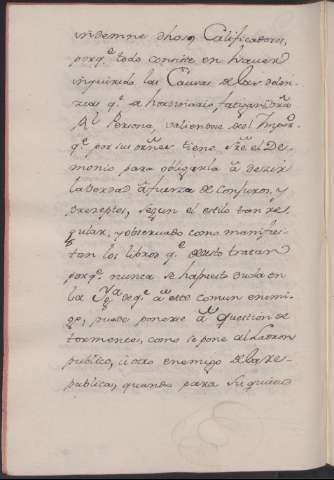 indemne dhos Calificadores,
porqe todo consiste en haver
inquirido las Causas de las dolen-
cias qe extrahordinario fatigan
Rl Persona, valiendose del Imper
qe por su orn tiene el De-
monio para obligarla a decir
la Verdad a fuerza de conjuros, y
preceptos, segun el estilo tan re
gular, y observado como manifies-
tan los libros qe de esto tratan
porqe nunca se ha puesto duda en
la de qe a este comun enemi-
go, puede ponerse a question de
tormentos, como se pone al Ladron
publico, i otro enemigo de la re-
publica, quando para su quietud